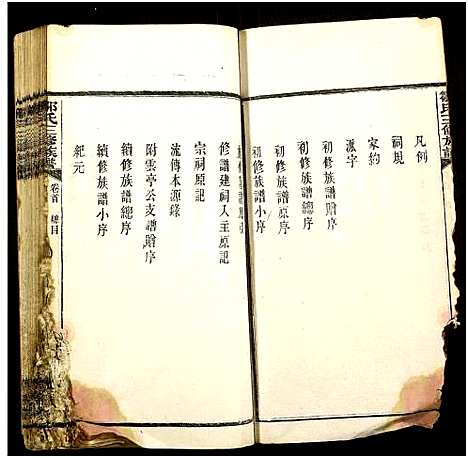 凡例
祠規
家約
派字
初修族譜贈序
初修族譜總序
初修族譜原序
初修族譜小序
修譜建祠人主原記
宗祠原記
流傳本源錄
附雲亭公支譜贈序
續修族譜總序
續修族譜小序
紀元
氏三修族譜
卷首
總目